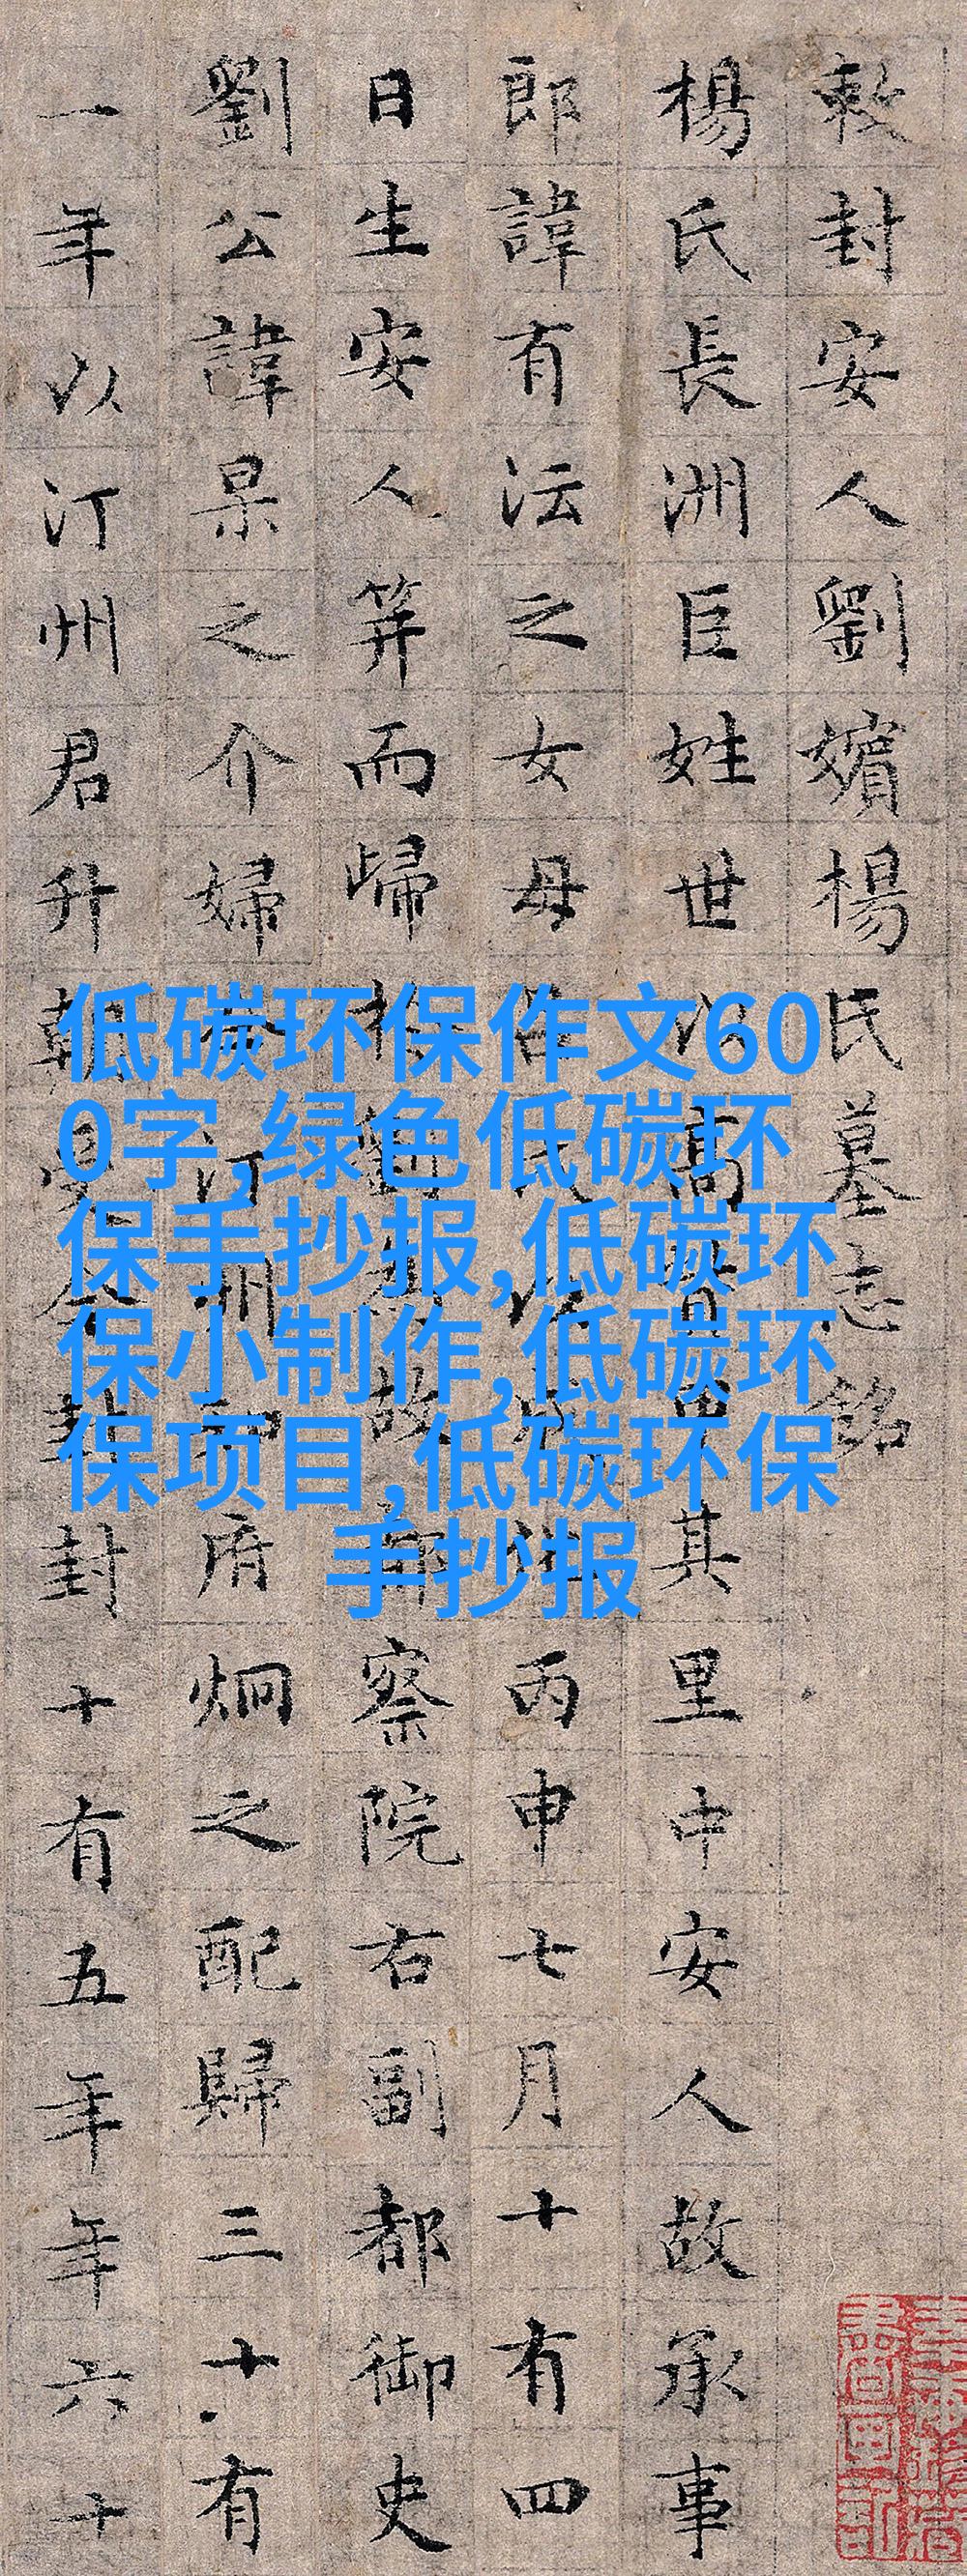 敕封安人劉嬪楊氏墓志銘
楊氏長洲巨姓世以高貲甲其里中安人故承事
郎諱有沄之女母氏以治丙申七月十有四
日生安人筭而歸於劉故都察院右副都御史
劉公諱杲之介婦今汀州知府炯之配歸三十有
一年以汀州君升朝受今封封十有五年年六十
低碳环保作文60
0字,绿色低碳环
保手抄报,低碳环
保小制作,低碳环
保项目,低碳环保
手抄报